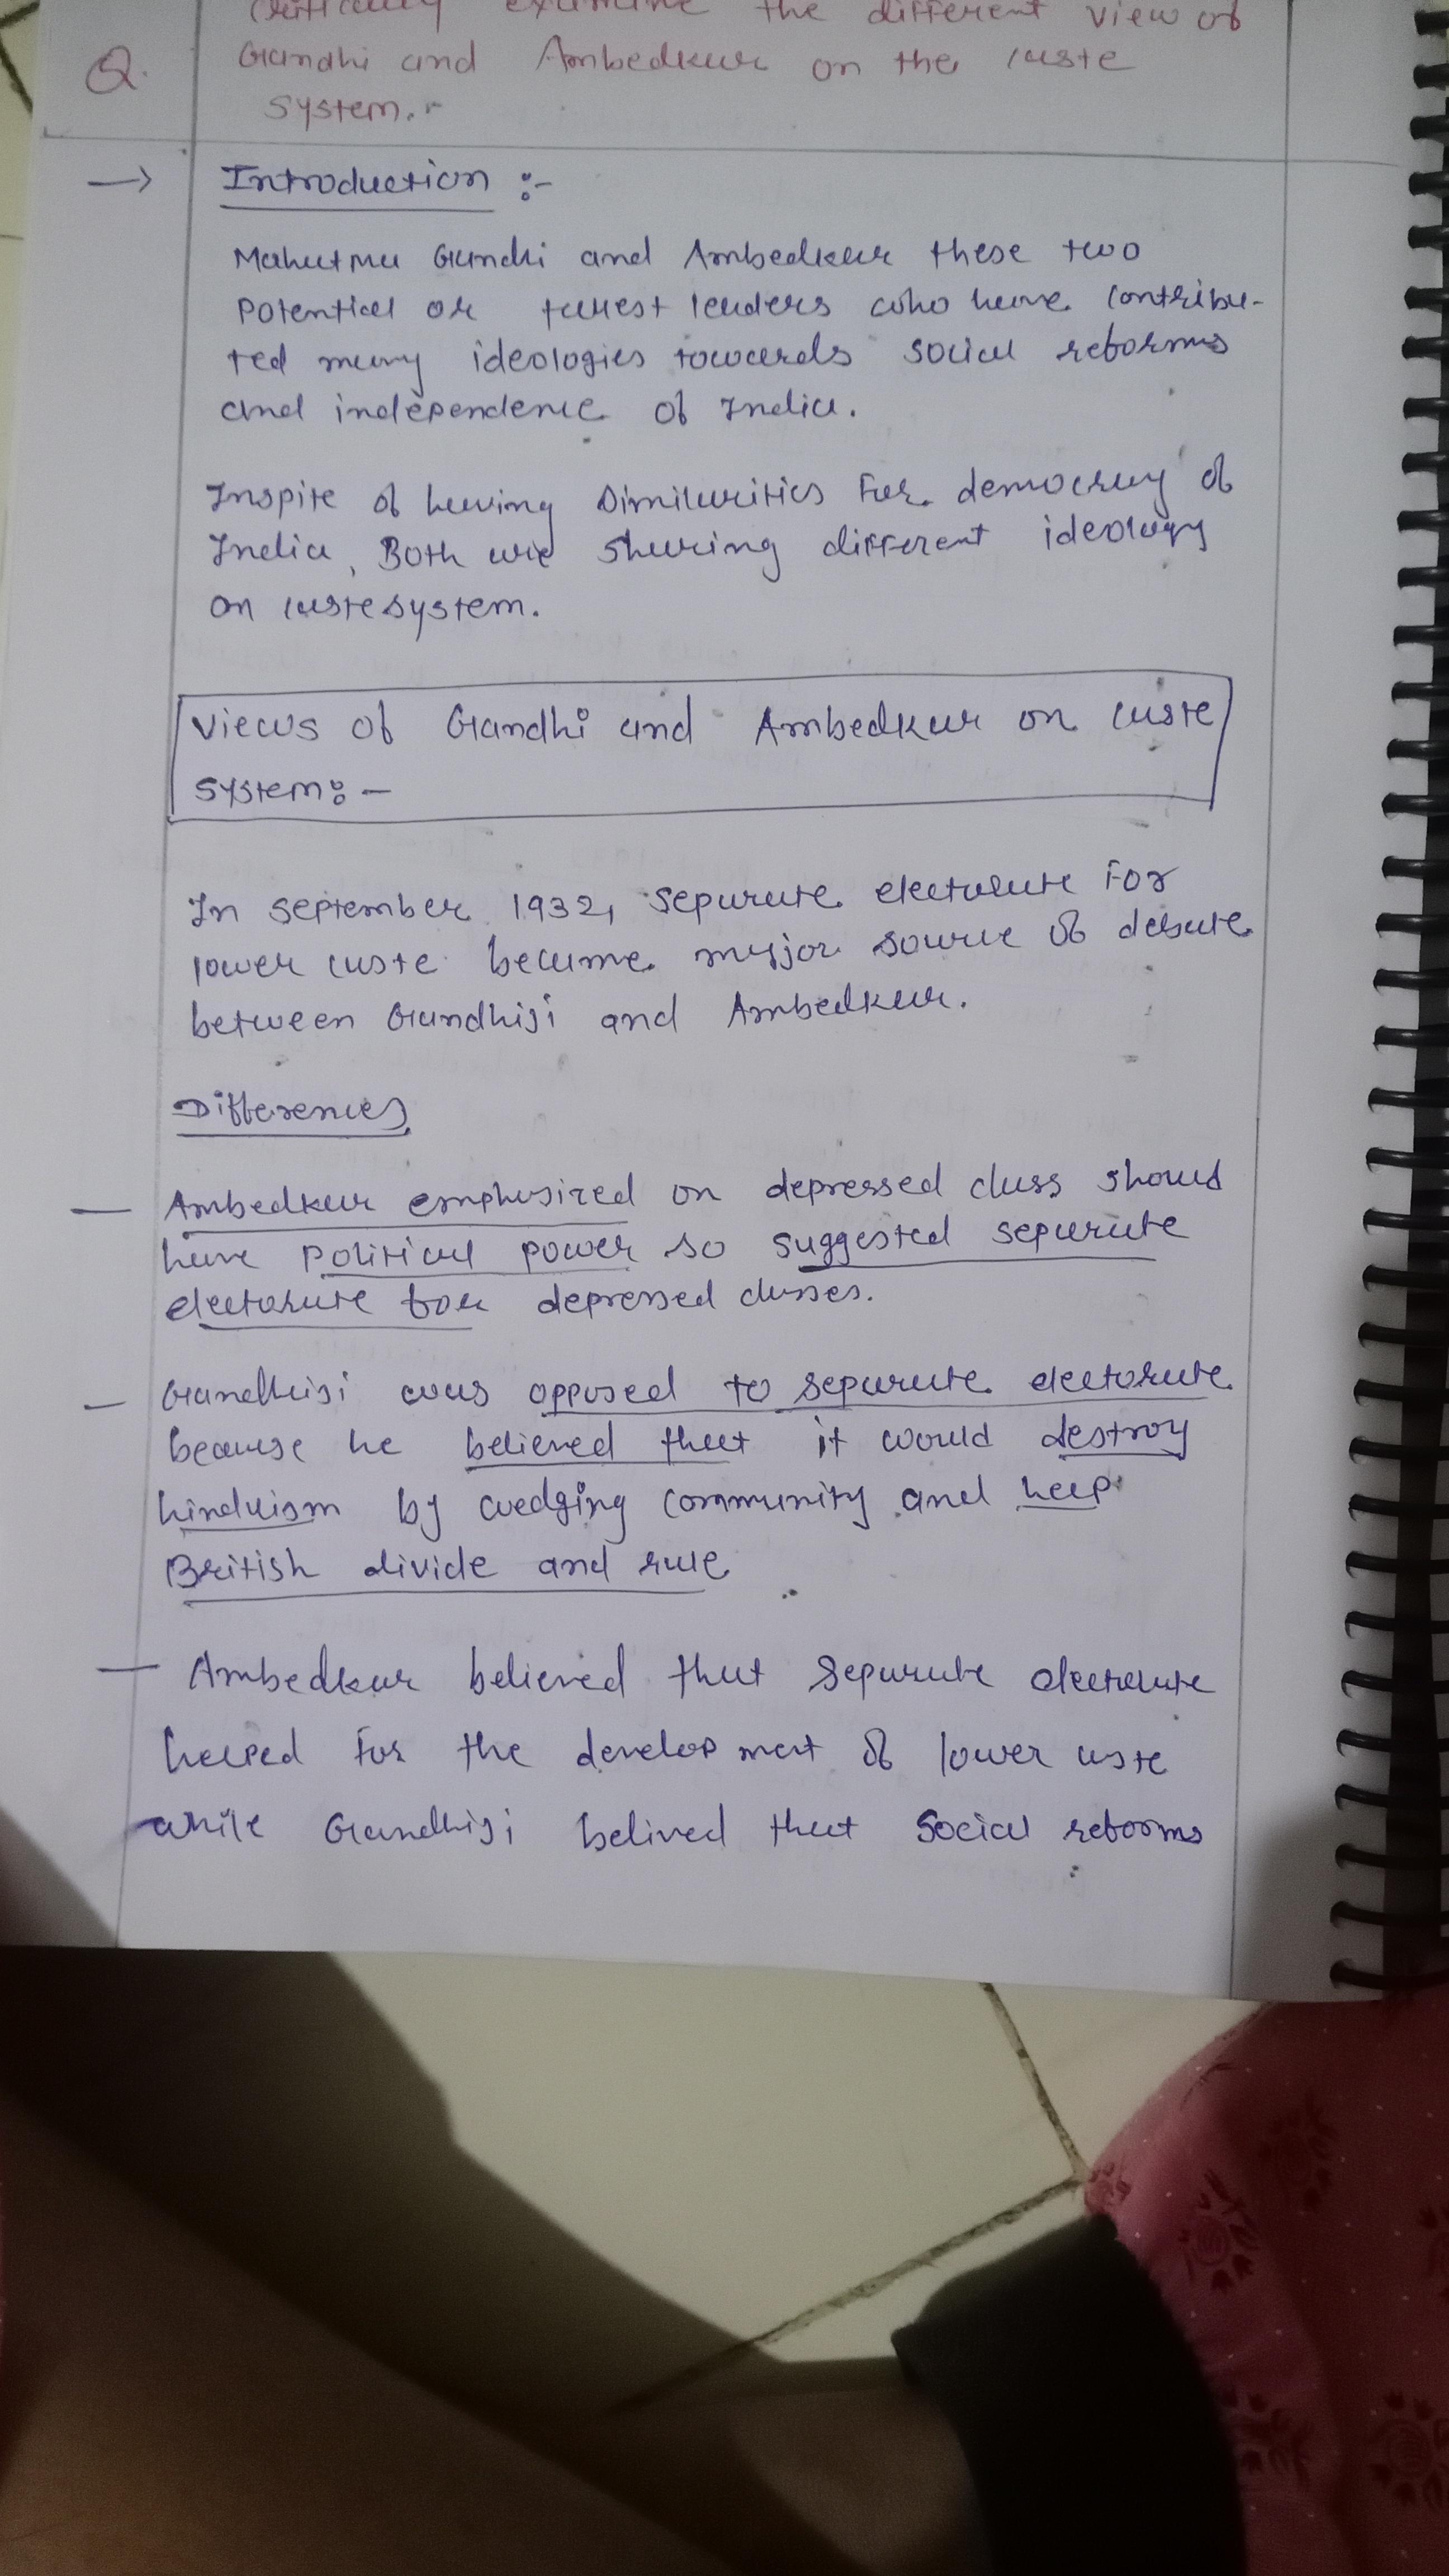 Critically examine the different view of
Q. Gandhi and Ambedkar on the caste
system.
→ Introduction :-
Mahatma Gandhi and Ambedkar these two
potential or tallest leaders who have contribu-
ted many ideologies towards social reforms
and independence of India.
Inspite of having similarities for democracy of
India, Both are sharing different ideology
on caste system.
Views of Gandhi and Ambedkar on caste
system :-
In september 1932, separate electorate For
lower caste became major source of debate
between Gandhiji and Ambedkar.
Differences
— Ambedkar emphasized on depressed class should
have political power so suggested separate
electorate for depressed classes.
— Gandhiji was opposed to separate electorate
because he believed that it would destroy
hinduism by wedging community and help
British divide and rule
— Ambedkar believed that separate electorate
helped for the development of lower caste
while Gandhiji belived that social reforms